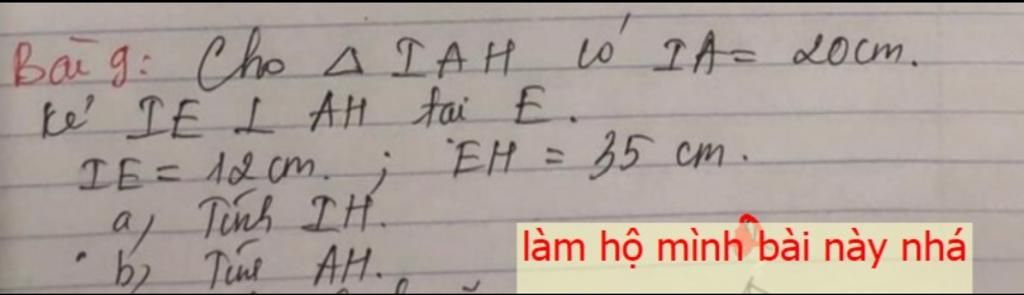 Bài 9: Cho Δ IAH có IA = 20cm.
kẻ IE ⊥ AH tại E.
IE = 12cm. ; EH = 35 cm.
a, Tính IH.
b, Tính AH.
làm hộ mình bài này nhá